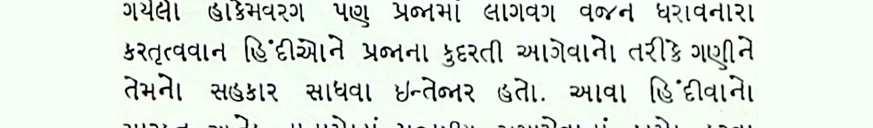 ગયેલા હાકેમવરગ પણ પ્રજામાં લાગવગ વજન ધરાવનારા
કરતૃત્વવાન હિંદીઓને પ્રજાના કુદરતી આગેવાનો તરીકે ગણીને
તેમનો સહકાર સાધવા ઇન્તેજાર હતો. આવા હિંદીવાનો